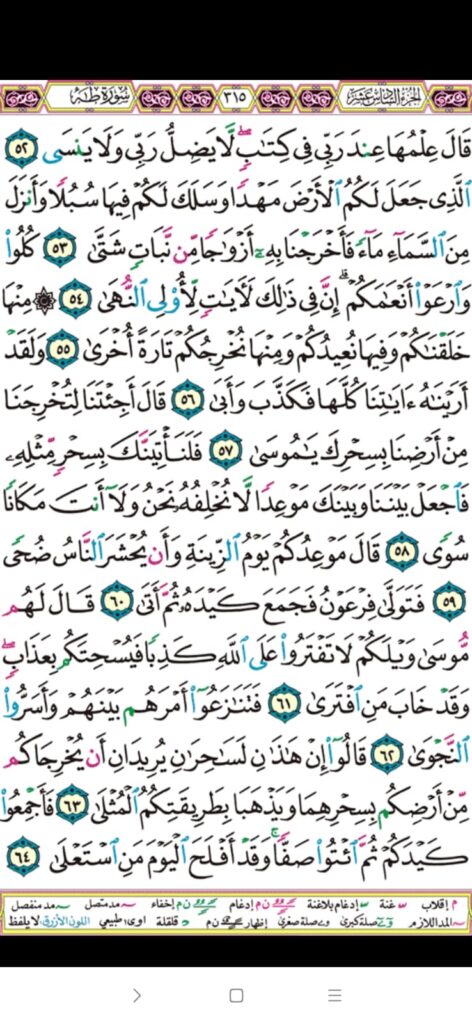 الجزء السادس عشر ٣١٥ سورة طه
قَالَ عِلْمُهَا عِندَ رَبِّي فِي كِتَٰبٍ لَّا يَضِلُّ رَبِّي وَلَا يَنسَى ٥٢
ٱلَّذِي جَعَلَ لَكُمُ ٱلْأَرْضَ مَهْدًا وَسَلَكَ لَكُمْ فِيهَا سُبُلًا وَأَنزَلَ
مِنَ ٱلسَّمَآءِ مَآءً فَأَخْرَجْنَا بِهِۦٓ أَزْوَٰجًا مِّن نَّبَاتٍ شَتَّىٰ ٥٣ كُلُوا۟
وَٱرْعَوْا۟ أَنْعَٰمَكُمْ ۗ إِنَّ فِي ذَٰلِكَ لَءَايَٰتٍ لِّأُو۟لِي ٱلنُّهَىٰ ٥٤ ۞ مِنْهَا
خَلَقْنَٰكُمْ وَفِيهَا نُعِيدُكُمْ وَمِنْهَا نُخْرِجُكُمْ تَارَةً أُخْرَىٰ ٥٥ وَلَقَدْ
أَرَيْنَٰهُ ءَايَٰتِنَا كُلَّهَا فَكَذَّبَ وَأَبَىٰ ٥٦ قَالَ أَجِئْتَنَا لِتُخْرِجَنَا
مِنْ أَرْضِنَا بِسِحْرِكَ يَٰمُوسَىٰ ٥٧ فَلَنَأْتِيَنَّكَ بِسِحْرٍ مِّثْلِهِۦ
فَٱجْعَلْ بَيْنَنَا وَبَيْنَكَ مَوْعِدًا لَّا نُخْلِفُهُۥ نَحْنُ وَلَآ أَنتَ مَكَانًا
سُوًى ٥٨ قَالَ مَوْعِدُكُمْ يَوْمُ ٱلزِّينَةِ وَأَن يُحْشَرَ ٱلنَّاسُ ضُحًى
٥٩ فَتَوَلَّىٰ فِرْعَوْنُ فَجَمَعَ كَيْدَهُۥ ثُمَّ أَتَىٰ ٦٠ قَالَ لَهُم
مُّوسَىٰ وَيْلَكُمْ لَا تَفْتَرُوا۟ عَلَى ٱللَّهِ كَذِبًا فَيُسْحِتَكُم بِعَذَابٍ ۖ
وَقَدْ خَابَ مَنِ ٱفْتَرَىٰ ٦١ فَتَنَٰزَعُوٓا۟ أَمْرَهُم بَيْنَهُمْ وَأَسَرُّوا۟
ٱلنَّجْوَىٰ ٦٢ قَالُوٓا۟ إِنْ هَٰذَٰنِ لَسَٰحِرَٰنِ يُرِيدَانِ أَن يُخْرِجَاكُم
مِّنْ أَرْضِكُم بِسِحْرِهِمَا وَيَذْهَبَا بِطَرِيقَتِكُمُ ٱلْمُثْلَىٰ ٦٣ فَأَجْمِعُوا۟
كَيْدَكُمْ ثُمَّ ٱئْتُوا۟ صَفًّا ۚ وَقَدْ أَفْلَحَ ٱلْيَوْمَ مَنِ ٱسْتَعْلَىٰ ٦٤
م إقلاب غنة إدغام بلاغنة ن م إدغام ن م إخفاء مد متصل مد منفصل
المد اللازم صلة كبرى صلة صغرى إظهار ن م قلقلة اوى طبيعي اللون الأزرق لا يلفظ